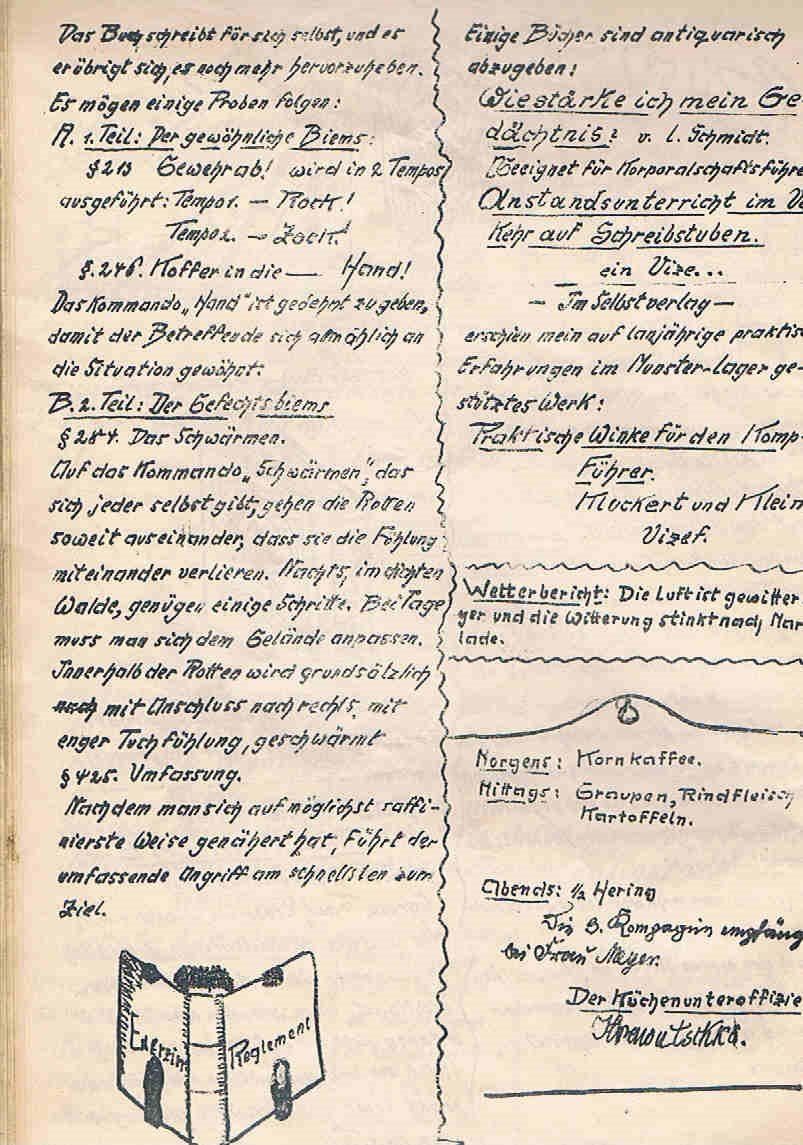 Das Buch schreibt für sich selbst, und es
erübrigt sich, es noch mehr hervorzuheben.
Es mögen einige Proben folgen:
A. 1. Teil: Der gewöhnliche Biems:
§213 Gewehr ab! wird in 2 Tempos
ausgeführt: Tempo 1. — Rock!
Tempo 2. — Zock!
§. 246. Koffer in die — Hand!
Das Kommando „Hand" ist gedehnt zu geben,
damit der Betreffende sich allmählich an
die Situation gewöhnt:
B. 2. Teil: Der Gefechtsbiems
§ 284. Das Schwärmen.
Auf das Kommando „Schwärmen", das
sich jeder selbst gibt, gehen die Rotten
soweit auseinander, dass sie die Fühlung
miteinander verlieren. Nachts, im dichten
Walde, genügen einige Schritte. Bei Tage
muss man sich dem Gelände anpassen.
Innerhalb der Rotten wird grundsätzlich
noch mit Anschluss nach rechts, mit
enger Tuchfühlung, geschwärmt
§ 425. Umfassung.
Nachdem man sich auf möglichst raffi-
nierste Weise genähert hat, führt der
umfassende Angriff am schnellsten zum
Ziel.
Exerzier
Reglement
Einige Bücher sind antiquarisch
abzugeben:
Wie stärke ich mein Ge
dächtnis? v. L. Schmidt.
Geeignet für Korporalschaftsführe
Anstandsunterricht im Ve
kehr auf Schreibstuben.
ein Vize...
— Im Selbstverlag —
erschien mein auf lanjährige praktis
Erfahrungen im Munster-lager ge-
stütztes Werk:
Praktische Winke für den Komp-
Führer.
Muckert und Klein
Vizef.
Wetterbericht: Die Luft ist gewitter
ger und die Witterung stinkt nach Mar
lade.
Morgens: Kornkaffee.
Mittags: Graupen, Rindfleisch
Kartoffeln.
Abends: ½ Hering
Die 3. Kompagnie empfäng
bei Frau Meyer.
Der Küchenunteroffizie